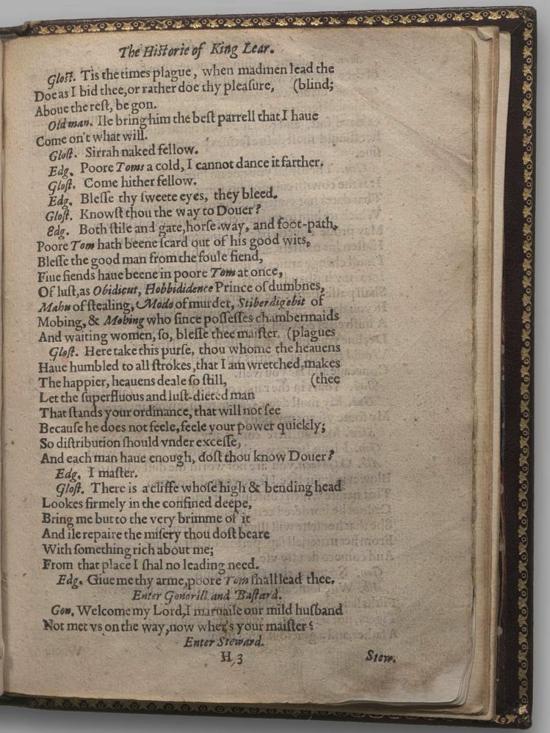 The Hiſtorie of King Lear.
Gloſt. Tis the times plague, when madmen lead the
Doe as I bid thee, or rather doe thy pleaſure, (blind;
Aboue the reſt, be gon.
Old man. Ile bring him the beſt parrell that I haue
Come on't what will.
Gloſt. Sirrah naked fellow.
Edg. Poore Toms a cold, I cannot dance it farther.
Gloſt. Come hither fellow.
Edg. Bleſſe thy ſweete eyes, they bleed.
Gloſt. Knowſt thou the way to Douer?
Edg. Both ſtile and gate, horſe-way, and foot-path,
Poore Tom hath beene ſcard out of his good wits,
Bleſſe the good man from the foule fiend,
Fiue fiends haue beene in poore Tom at once,
Of luſt, as Obidicut, Hobbididence Prince of dumbnes,
Mahu of ſtealing, Modo of murder, Stiberdigebit of
Mobing, & Mobing who ſince poſſeſſes chambermaids
And waiting women, ſo, bleſſe thee maiſter. (plagues
Gloſt. Here take this purſe, thou whome the heauens
Haue humbled to all ſtrokes, that I am wretched, makes
The happier, heauens deale ſo ſtill, (thee
Let the ſuperfluous and luſt-dieted man
That ſtands your ordinance, that will not ſee
Becauſe he does not feele, feele your power quickly;
So diſtribution ſhould vnder exceſſe,
And each man haue enough, doſt thou know Douer?
Edg. I maſter.
Gloſt. There is a cliffe whoſe high & bending head
Lookes firmely in the confined deepe,
Bring me but to the very brimme of it
And ile repaire the miſery thou doſt beare
With ſomething rich about me;
From that place I ſhal no leading need.
Edg. Giue me thy arme, poore Tom ſhall lead thee.
Enter Gonorill and Baſtard.
Gon. Welcome my Lord, I maruaile our mild huſband
Not met vs on the way, now wher's your maiſter?
Enter Steward.
H 3 Stew.